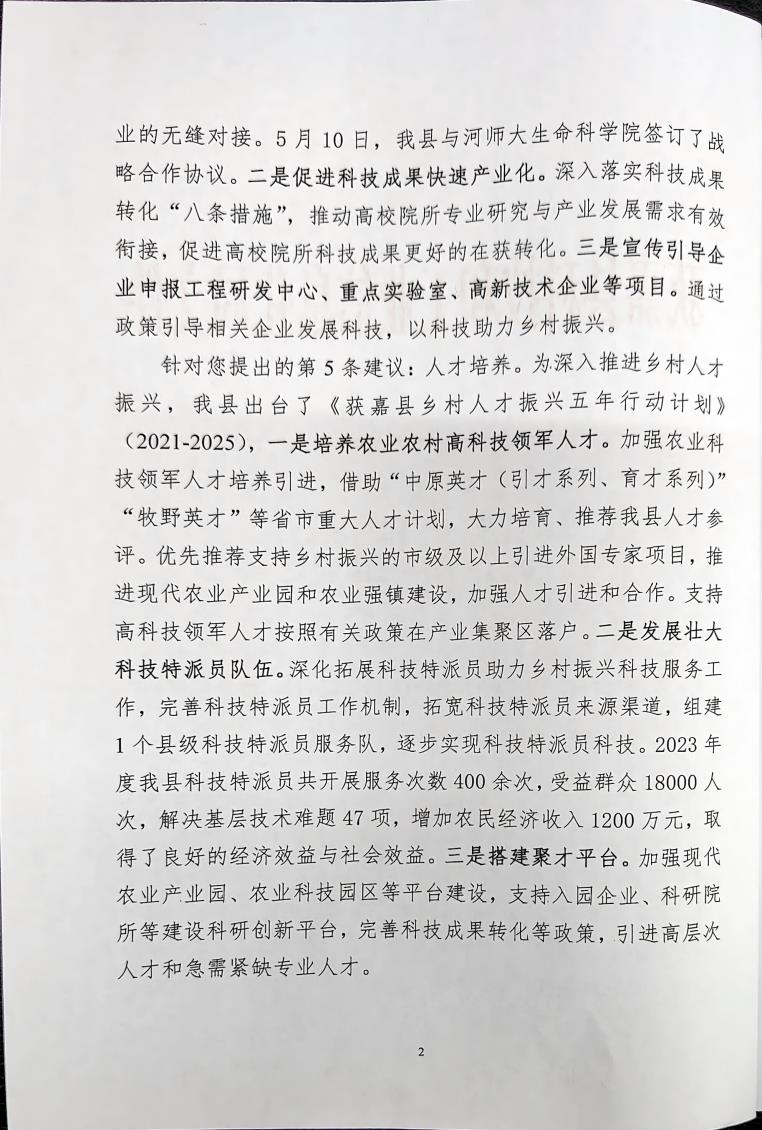 业的无缝对接。5 月 10 日，我县与河师大生命科学院签订了战
略合作协议。二是促进科技成果快速产业化。深入落实科技成果
转化“八条措施”，推动高校院所专业研究与产业发展需求有效
衔接，促进高校院所科技成果更好的在获转化。三是宣传引导企
业申报工程研发中心、重点实验室、高新技术企业等项目。通过
政策引导相关企业发展科技，以科技助力乡村振兴。
针对您提出的第 5 条建议：人才培养。为深入推进乡村人才
振兴，我县出台了《获嘉县乡村人才振兴五年行动计划》
（2021-2025），一是培养农业农村高科技领军人才。加强农业科
技领军人才培养引进，借助“中原英才（引才系列、育才系列）”
“牧野英才”等省市重大人才计划，大力培育、推荐我县人才参
评。优先推荐支持乡村振兴的市级及以上引进外国专家项目，推
进现代农业产业园和农业强镇建设，加强人才引进和合作。支持
高科技领军人才按照有关政策在产业集聚区落户。二是发展壮大
科技特派员队伍。深化拓展科技特派员助力乡村振兴科技服务工
作，完善科技特派员工作机制，拓宽科技特派员来源渠道，组建
1 个县级科技特派员服务队，逐步实现科技特派员科技。2023 年
度我县科技特派员共开展服务次数 400 余次，受益群众 18000 人
次，解决基层技术难题 47 项，增加农民经济收入 1200 万元，取
得了良好的经济效益与社会效益。三是搭建聚才平台。加强现代
农业产业园、农业科技园区等平台建设，支持入园企业、科研院
所等建设科研创新平台，完善科技成果转化等政策，引进高层次
人才和急需紧缺专业人才。
2